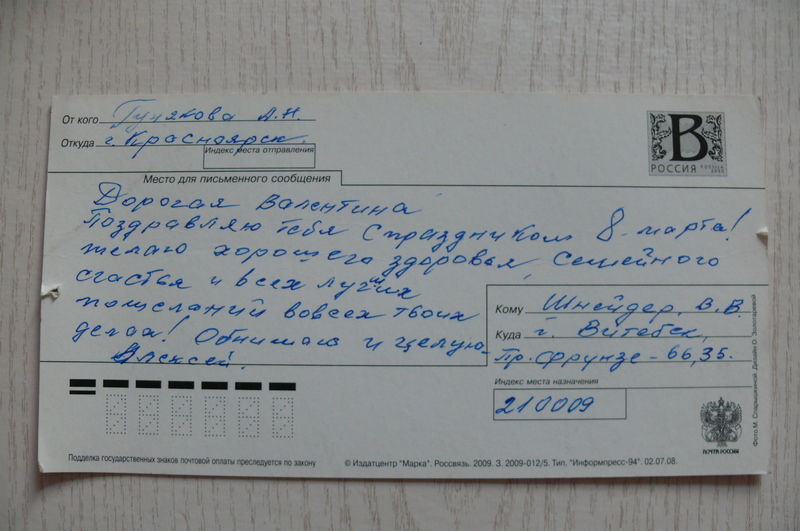 От кого Гуляkова А.Н.
Откуда г. Красноярск.
Индекс места отправления
В
РОССИЯ
Место для письменного сообщения
Дорогая Валентина
Поздравляю тебя с праздником 8 марта!
желаю хорошего здоровья, семейного
счастья и всех лучших
пожеланий вовсех твоих
делах! Обнимаю и целую-
Алексей.
Кому Шнейдер. В.В.
Куда г. Витебск,
Пр. Фрунзе - 66, 35.
Индекс места назначения
210009
ПОЧТА РОССИИ
Фото М. Дизайн О. Золотаревой
Подделка государственных знаков почтовой оплаты преследуется по закону
© Издатцентр "Марка". Россвязь. 2009. З. 2009-012/5. Тип. "Информпресс-94". 02.07.08.